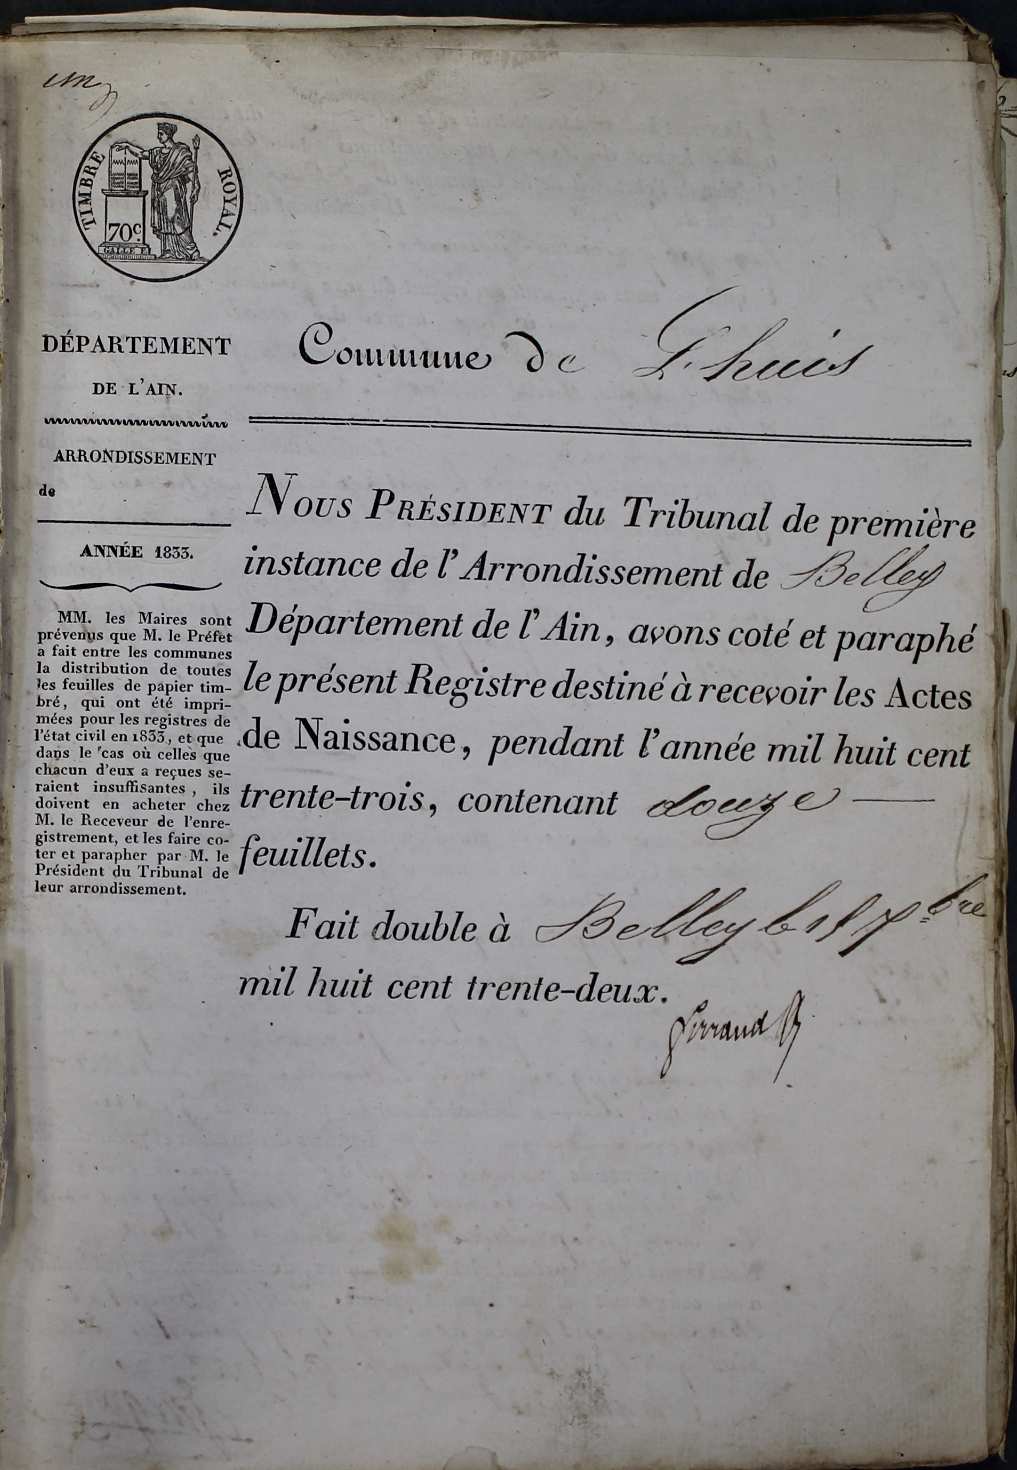 un
TIMBRE ROYAL.
70c
GALLE F.
DÉPARTEMENT
DE L'AIN.
ARRONDISSEMENT
de
ANNÉE 1833.
MM. les Maires sont
prévenus que M. le Préfet
a fait entre les communes
la distribution de toutes
les feuilles de papier tim-
bré, qui ont été impri-
mées pour les registres de
l'état civil en 1833, et que
dans le cas où celles que
chacun d'eux a reçues se-
raient insuffisantes, ils
doivent en acheter chez
M. le Receveur de l'enre-
gistrement, et les faire co-
ter et parapher par M. le
Président du Tribunal de
leur arrondissement.
Commune de Lhuis
NOUS PRÉSIDENT du Tribunal de première
instance de l'Arrondissement de Belley
Département de l'Ain, avons coté et paraphé
le présent Registre destiné à recevoir les Actes
de Naissance, pendant l'année mil huit cent
trente-trois, contenant douze —
feuillets.
Fait double à Belley le 15 7bre
mil huit cent trente-deux.
Ferrand